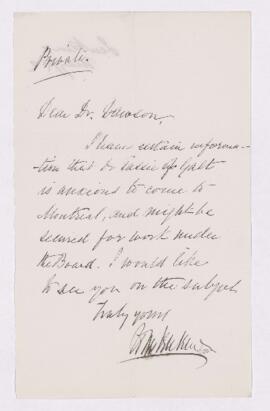 Private.
Dear Dr. Dawson,
I have certain informa-
tion that Dr Tassie of Galt
is anxious to come to
Montreal, and might be
secured for work under
the Board. I would like
to see you on the subject
Truly yours